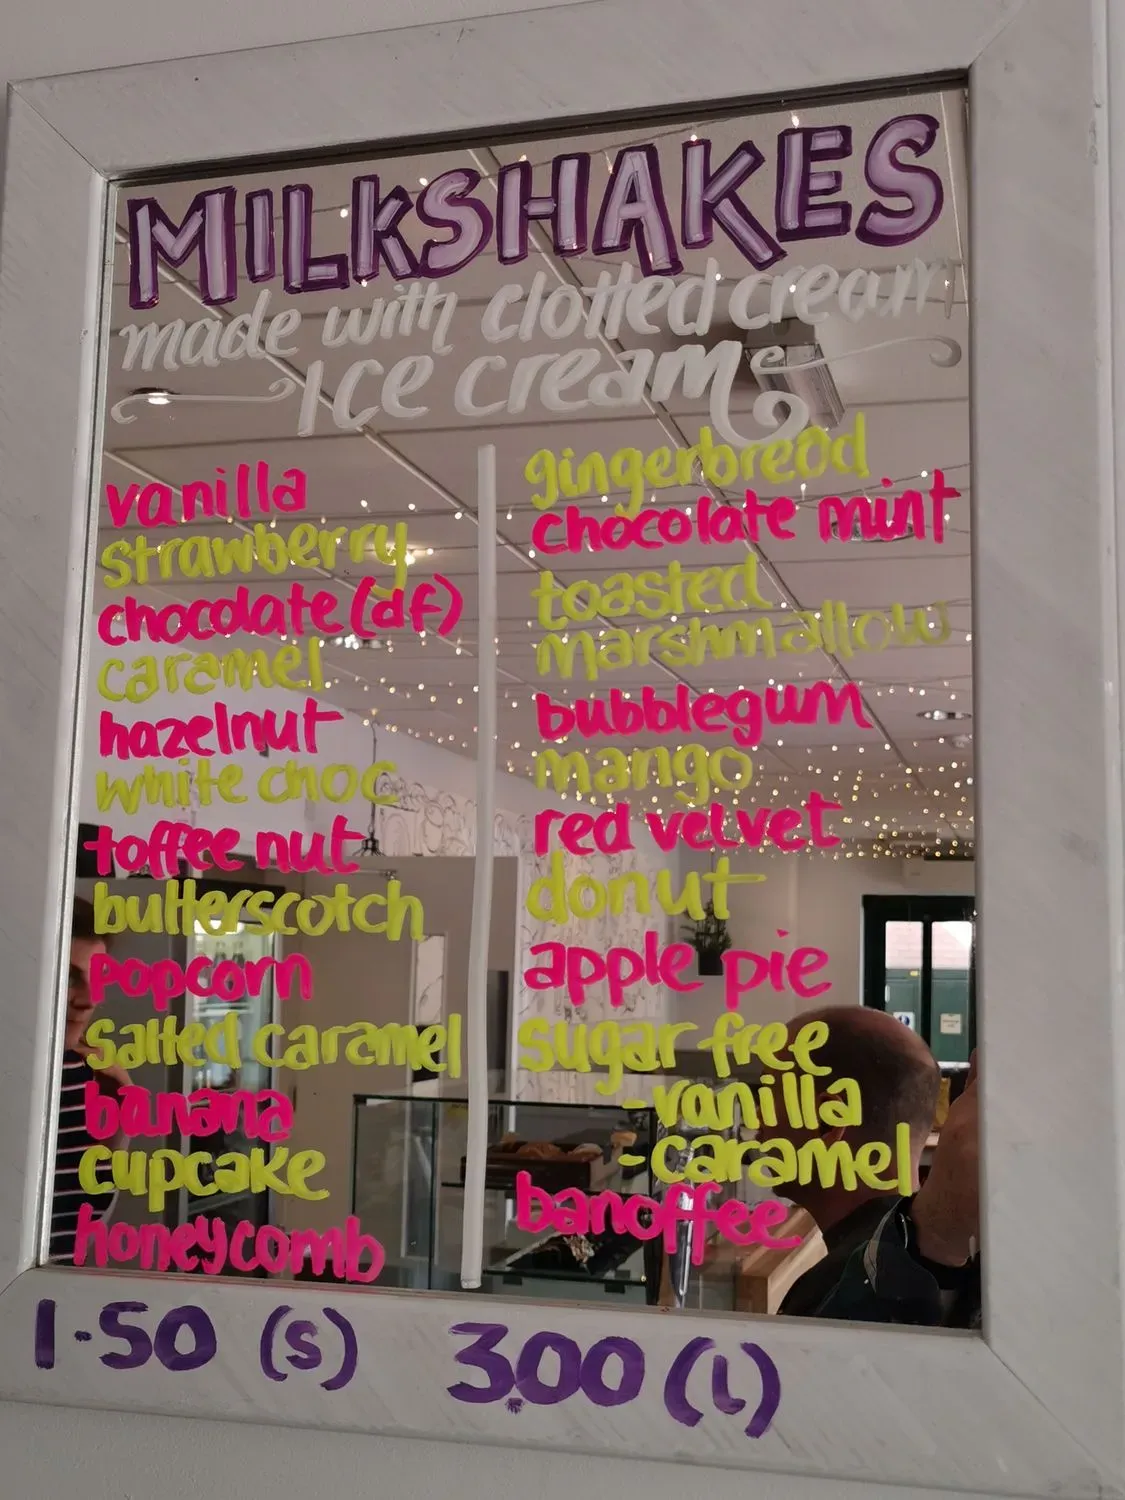 MILKSHAKES
made with clotted cream
Ice cream
vanilla
strawberry
chocolate (df)
caramel
hazelnut
white choc
toffee nut
butterscotch
popcorn
salted caramel
banana
cupcake
honeycomb
gingerbread
chocolate mint
toasted
marshmallow
bubblegum
mango
red velvet
donut
apple pie
sugar free
-vanilla
-caramel
banoffee
1.50 (s) 3.00 (l)